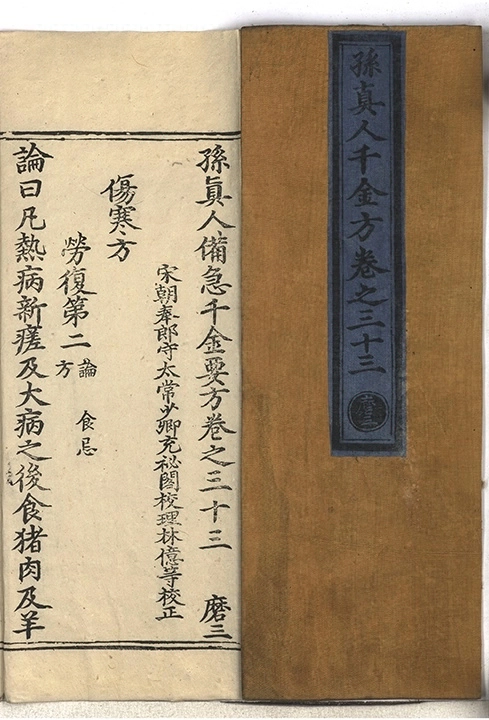 孫真人千金方卷之三十三
磨三
孫眞人備急千金要方卷之三十三 磨三
宋朝奉郎守太常少卿充祕閣校理林億等校正
傷寒方
勞復第二 論 方 食忌
論曰凡熱病新瘥及大病之後食猪肉及羊